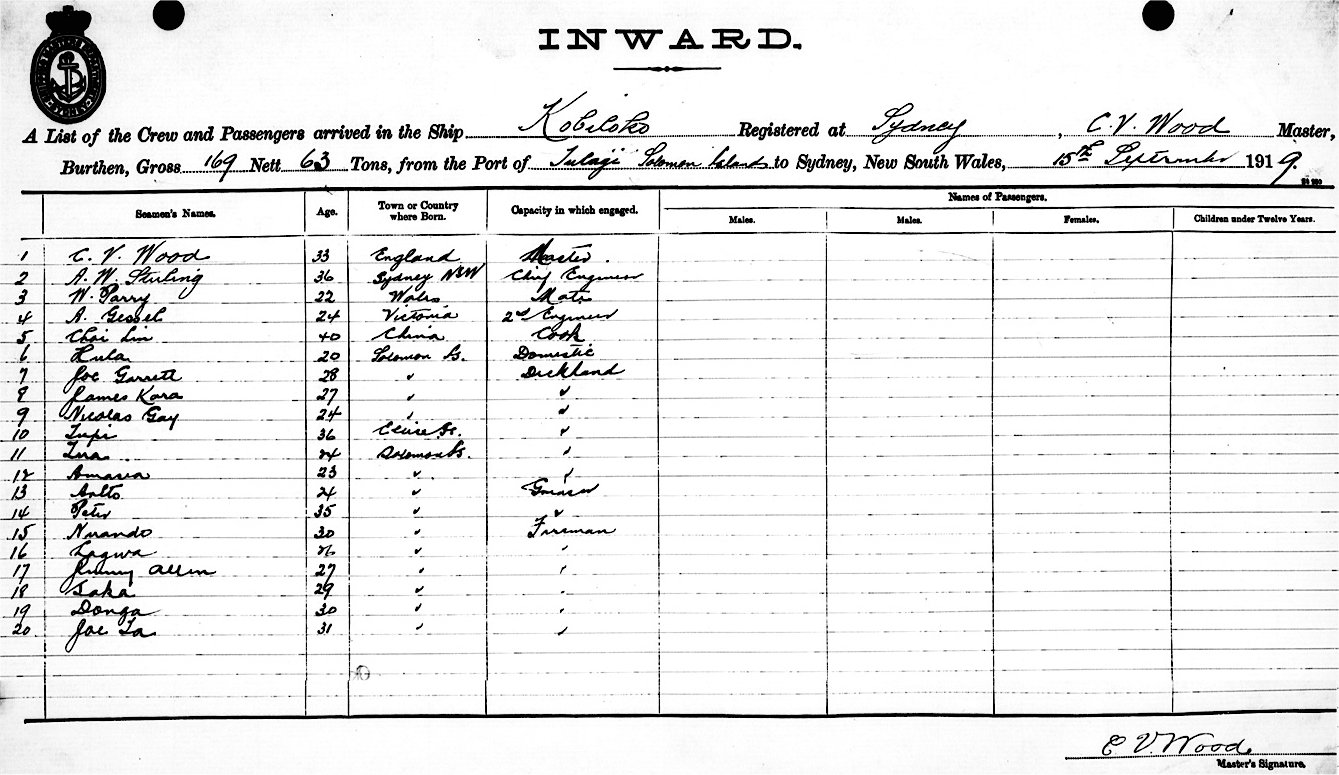 INWARD.
A List of the Crew and Passengers arrived in the Ship Kobiloko Registered at Sydney, C. V. Wood Master,
Burthen, Gross 169 Nett 63 Tons, from the Port of Tulagi Solomon Islands to Sydney, New South Wales, 15th September 1919.
Seamen's Names. Age. Town or Country where Born. Capacity in which engaged. Names of Passengers.
Males. Males. Females. Children under Twelve Years.
1 C. V. Wood 33 England Master.
2 A. W. Stirling 36 Sydney NSW Chief Engineer
3 W. Parry 22 Wales Mate
4 A. Gessel 24 Victoria 2nd Engineer
5 Choi Lin 40 China Cook
6 Hula 20 Solomon Is. Domestic
7 Joe Garrett 28 " Deckhand
8 James Kara 27 " "
9 Nicolas Gay 24 " "
10 Tupi 36 Ellice Is. "
11 24 Solomon Is. "
12 Amasia 23 " "
13 24 " Greaser
14 Peter 35 " "
15 Nurando 30 " Fireman
16 Lagwa " "
17 Jimmy Allen 27 " "
18 Taka 29 " "
19 Donga 30 " "
20 Joe 31 " "
C. V. Wood.
Master's Signature.